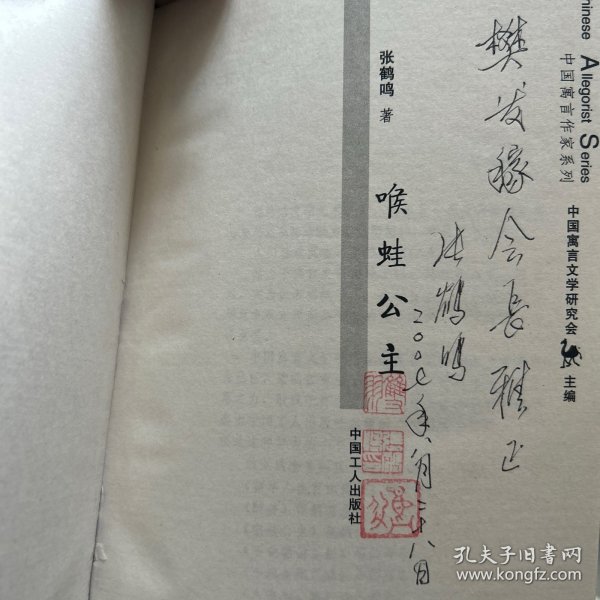 Chinese Allegorist Series
中国寓言作家系列
中国寓言文学研究会 主编
樊发稼会长雅正
张鹤鸣
二00七年八月二十八日
张鹤鸣 著
喉蛙公主
中国工人出版社
孔夫子旧书网
www.kongfz.com